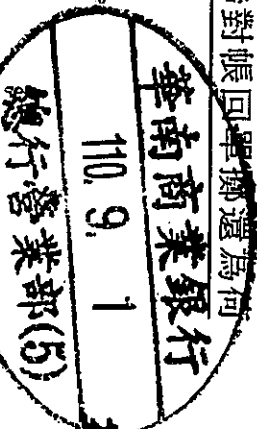 對帳回單擲還為何
華南商業銀行
110. 9. 1
總行營業部(5)